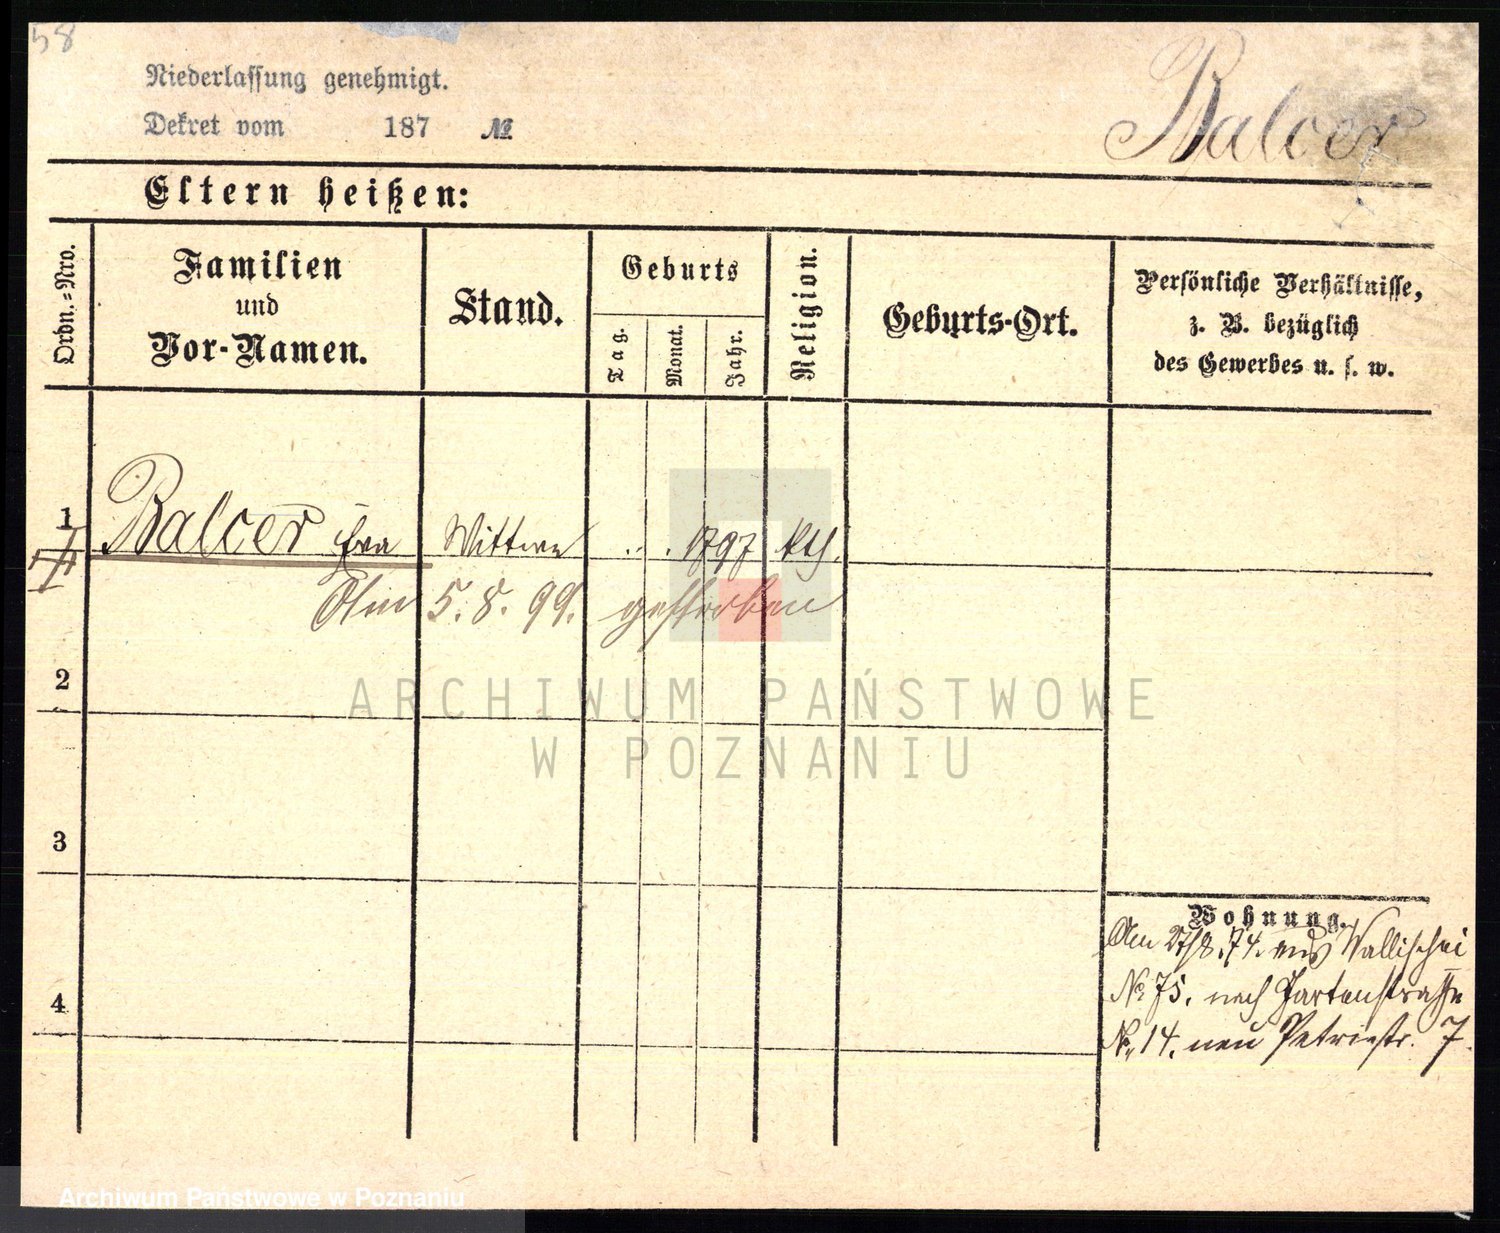 58
Niederlassung genehmigt.
Dekret vom 187 №
Balcer
Eltern heißen:
Ordn.-Nro.
Familien
und
Vor-Namen.
Stand.
Geburts
Tag.
Monat.
Jahr.
Religion.
Geburts-Ort.
Persönliche Verhältnisse,
z. B. bezüglich
des Gewerbes u. s. w.
1 Balcer Eva Wittwe . . . 1797 kth.
Am 5.8.99. gestorben
2
3
4
Wohnung.
Am 27/8.74. aus Wallischei
№ 75. nach Gartenstrasse
№ 14. neu Petristr. 7.
ARCHIWUM PAŃSTWOWE
W POZNANIU
Archiwum Państwowe w Poznaniu